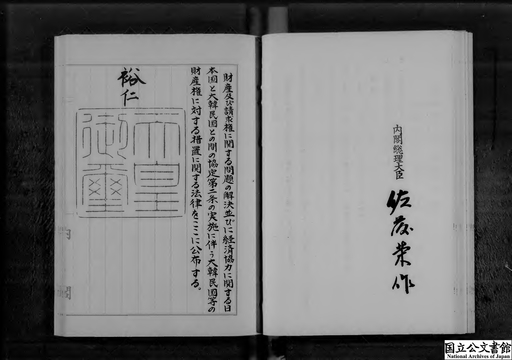 内閣総理大臣
佐藤栄作
財産及び請求権に関する問題の解決並びに経済協力に関する日
本国と大韓民国との間の協定第二条の実施に伴う大韓民国等の
財産権に対する措置に関する法律をここに公布する。
裕仁
天皇
御璽
国立公文書館
National Archives of Japan